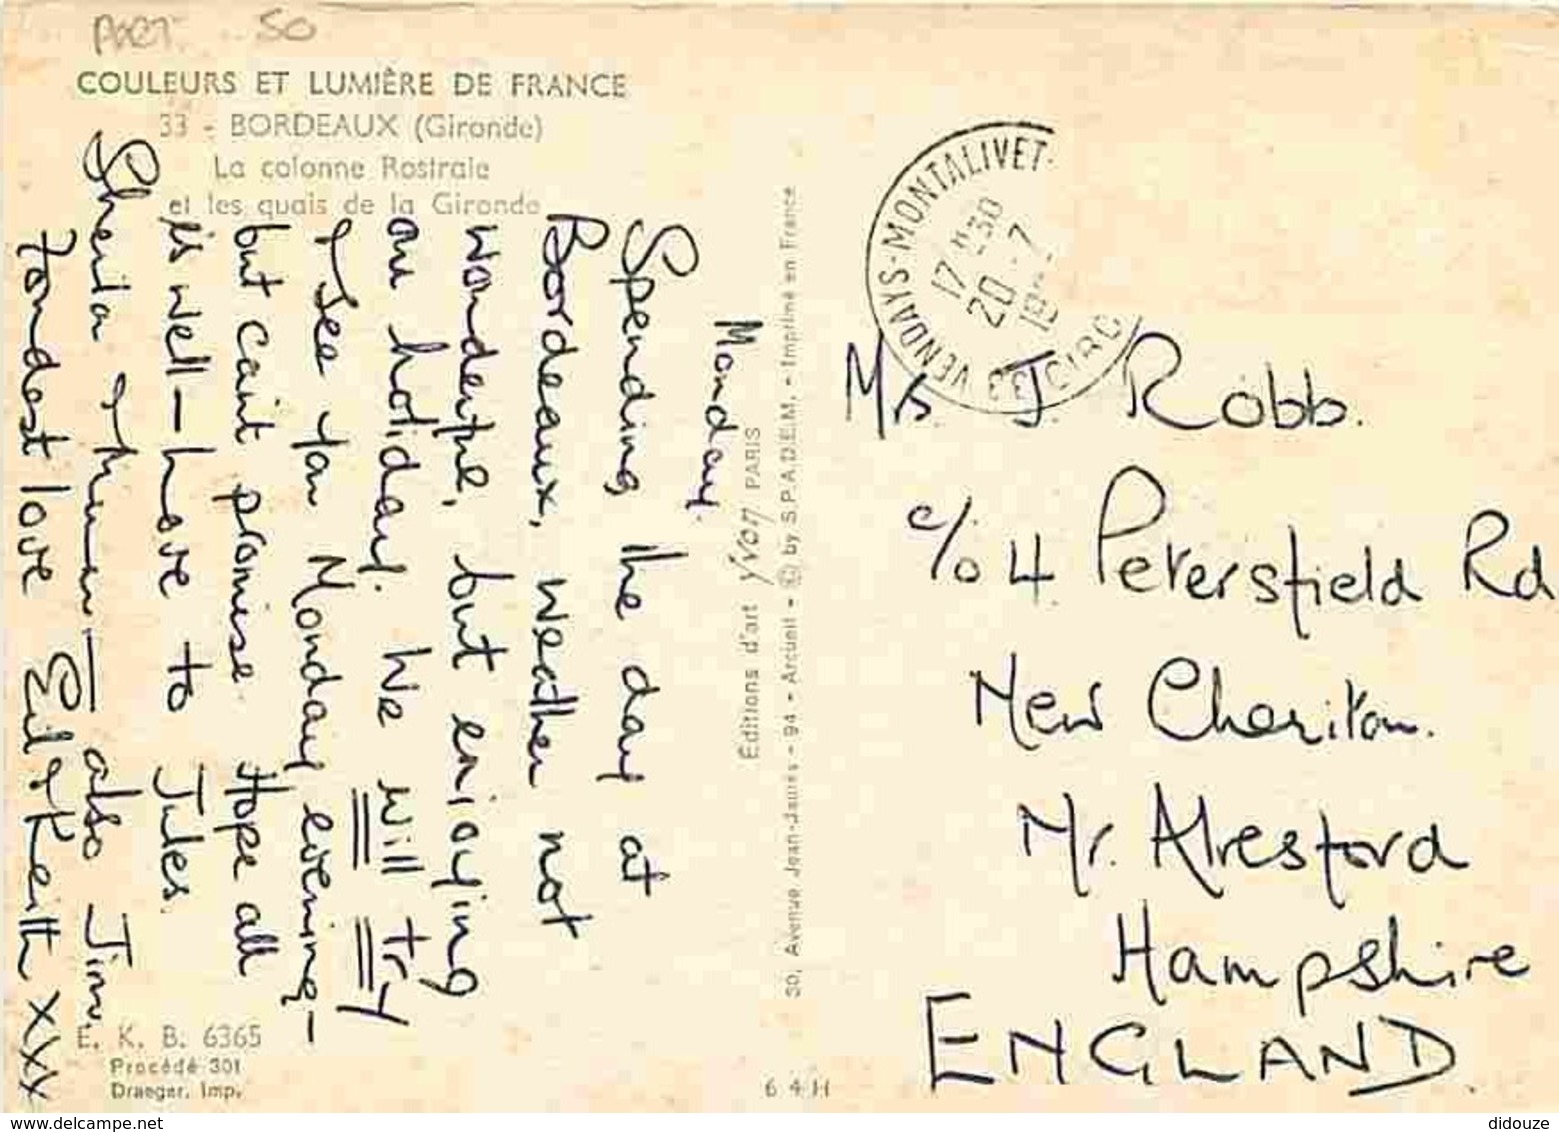 PART 50
COULEURS ET LUMIÈRE DE FRANCE
33 - BORDEAUX (Gironde)
La colonne Rostrale
et les quais de la Gironde
Monday.
Spending the day at
Bordeaux, weather not
wonderful, but enjoying
our holiday. We will try
& See you Monday evening -
but can't promise. Hope all
is well - love to Jules.
Sheila & - also Jim.
Fondest love & Keith xxx
E. K. B. 6365
Procédé 301
Draeger, Imp.
Éditions d'art Yvon PARIS
30, Avenue Jean-Jaurès - 94 - Arcueil - © by S.P.A.D.E.M. - Imprimé en France
6 4 H
VENDAYS-MONTALIVET
17 H 30
20 -7
33 GIRONDE
J. Robb.
c/o 4 Petersfield Rd
New Cheriton.
Nr. Alresford
Hampshire
ENGLAND
delcampe.net
didouze